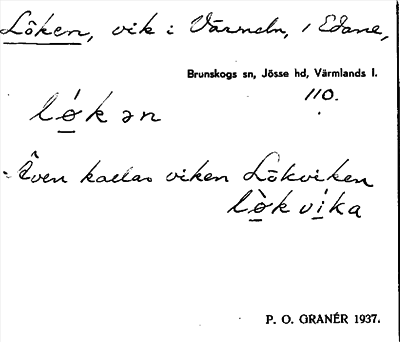 Löken, vik i Värmeln, i Edane,
Brunskogs sn, Jösse hd, Värmlands l.
110.
lǿ̲kən
Även kallas viken Lökviken
lø̲̀kví̲ka
P. O. GRANÉR 1937.